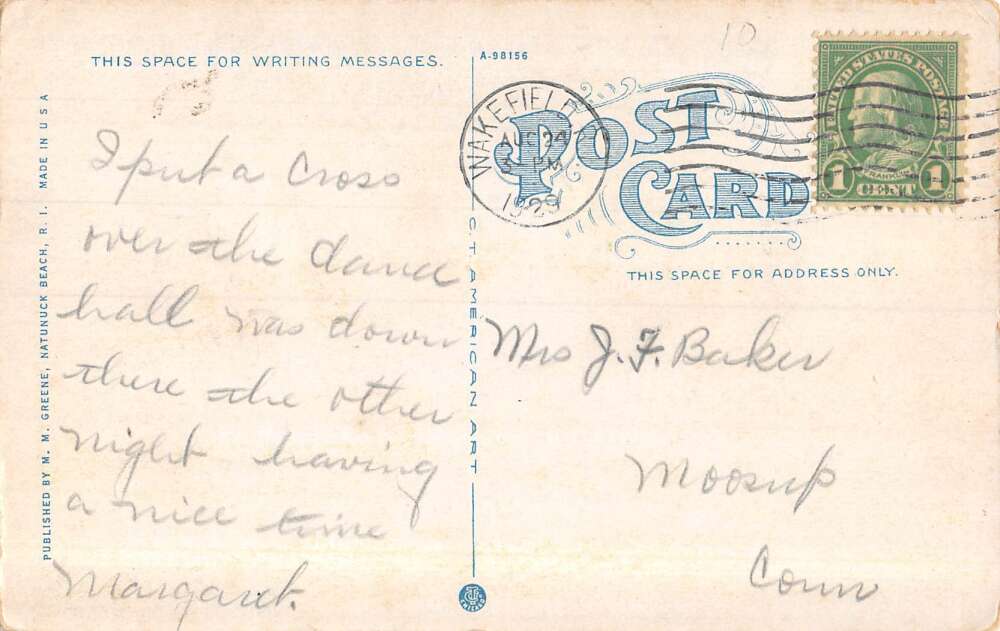 THIS SPACE FOR WRITING MESSAGES.
A-98156
10
WAKEFIELD
AUG 24
5 PM
1929
UNITED STATES POSTAGE
FRANKLIN
1 CENT 1
POST
CARD
THIS SPACE FOR ADDRESS ONLY.
I put a Cross
over the dance
hall was down
there the other
night having
a nice time
Margaret.
Mrs J. F. Baker
Moosup
Conn
PUBLISHED BY M. M. GREENE, NATUNUCK BEACH, R. I. MADE IN U S A
C. T. AMERICAN ART
CHICAGO